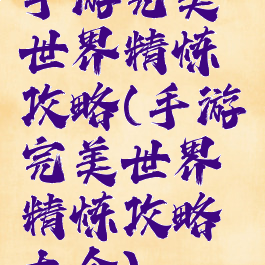 手游完美
世界精炼
攻略(手游
完美世界
精炼攻略
大全)